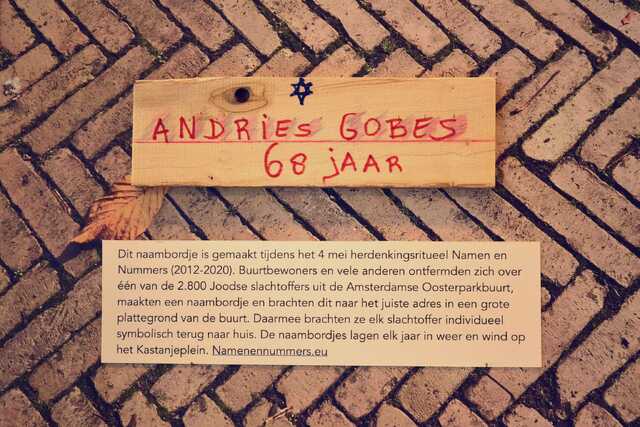 ANDRIES GOBES
68 jAAR
Dit naambordje is gemaakt tijdens het 4 mei herdenkingsritueel Namen en
Nummers (2012-2020). Buurtbewoners en vele anderen ontfermden zich over
één van de 2.800 Joodse slachtoffers uit de Amsterdamse Oosterparkbuurt,
maakten een naambordje en brachten dit naar het juiste adres in een grote
plattegrond van de buurt. Daarmee brachten ze elk slachtoffer individueel
symbolisch terug naar huis. De naambordjes lagen elk jaar in weer en wind op
het Kastanjeplein. Namenennummers.eu